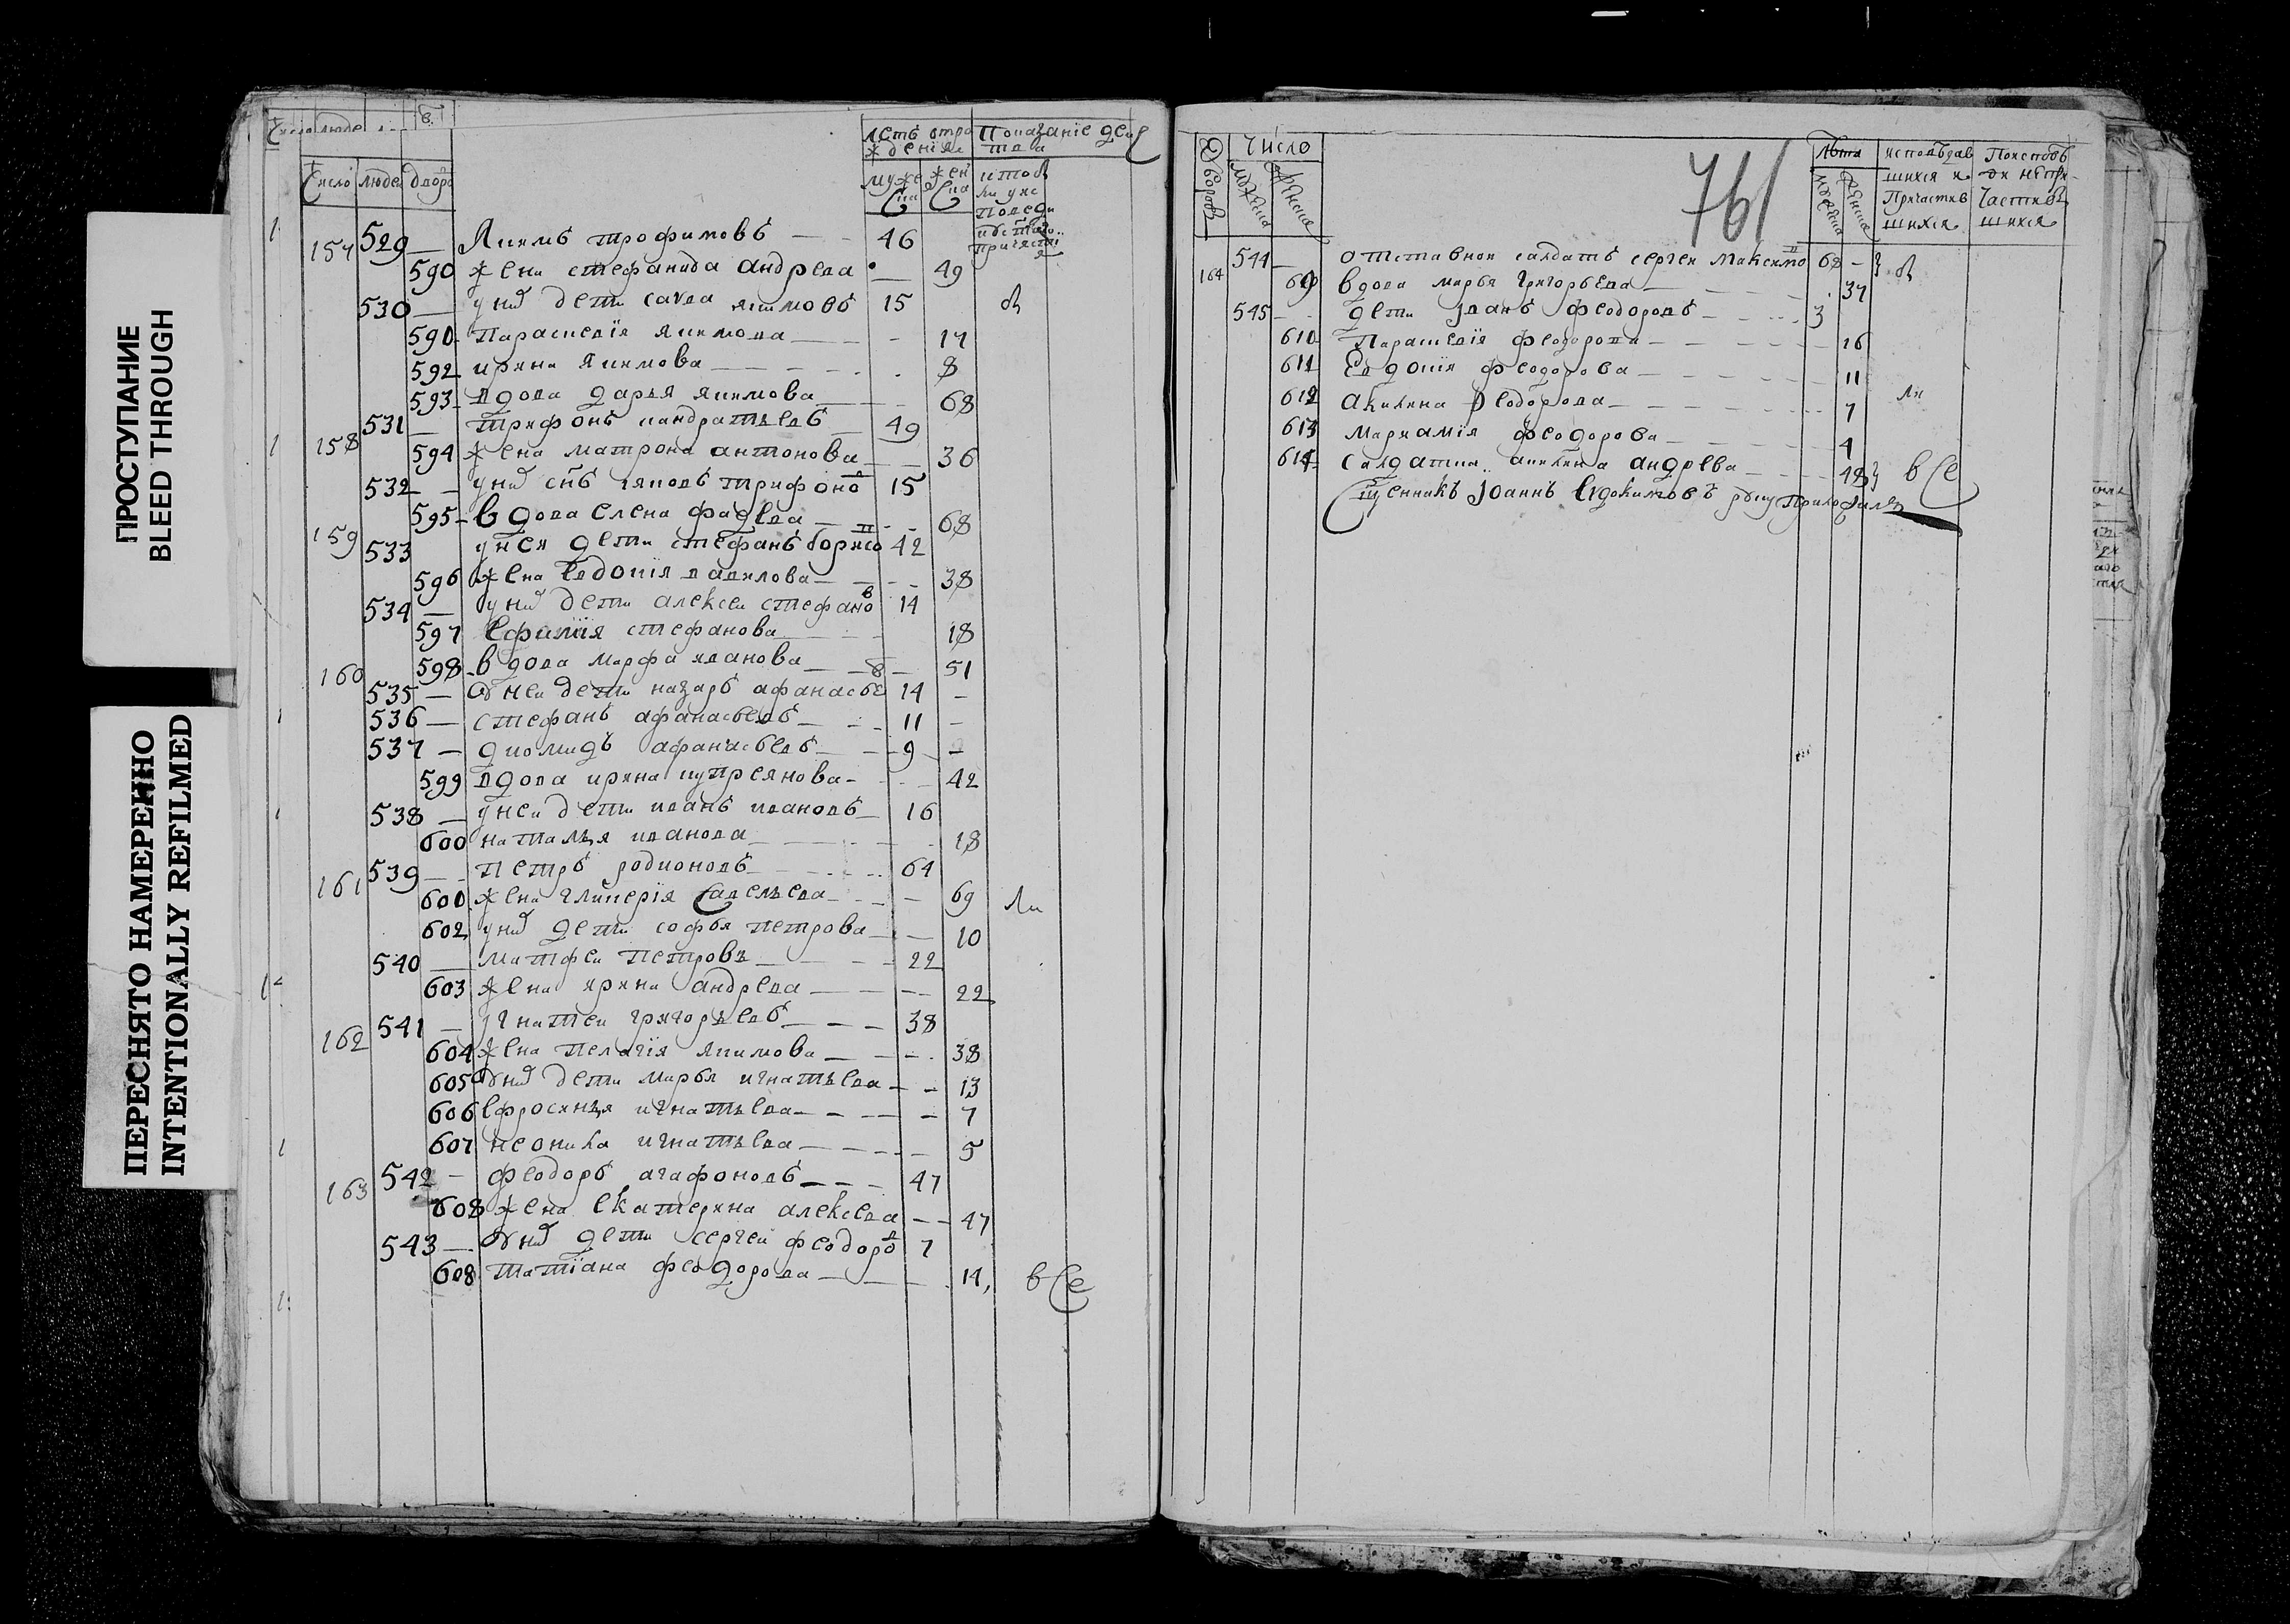 ПРОСТУПАНИЕ
BLEED THROUGH
ПЕРЕСНЯТО НАМЕРЕННО
INTENTIONALLY REFILMED
Число люде
летъ отро Показанїе деи
жденїя ства
Число людеи дворо
муже жен
ска ска
157 529 — Якимъ трофимовъ — 46
590 жена стефанида андрева — 49
530 — униⷯ дети савва якимовъ 15
590 Параскевїя якимова — 17
592 ирина якимова — 8
593 вдова дарья якимова — 68
158 531 — трифонъ кандратьевъ — 49
594 жена матрона антонова — 36
532 — униⷯ снъ яковъ трифоноⷡ 15
159 595 вдова елена фадева — 68
533 унея дети стефанъ борисоⷡ 42
596 жена евдокїя данилова — 38
534 — униⷯ дети алексеи стефаноⷡ 14
597 ефимїя стефанова 18
160 598 вдова марфа иванова — 51
535 — у неи дети назаръ афанасьеⷡ 14 —
536 — стефанъ афанасьевъ — 11 —
537 — диомидъ афанасьевъ — 9 —
599 вдова ирина купреянова — 42
538 — унеи дети иванъ ивановъ — 16
600 наталья иванова 18
161 539 — Петръ родионовъ 64
600 жена гликерїя савельева — 69 Ли
602 униⷯ дети софья петрова — 10
540 — матфеи петровъ — 22
603 жена ирина андрева — 22
162 541 — игнатеи григорьевъ — 38
604 жена пелагїя якимова — 38
605 униⷯ дети марья игнатьева — 13
606 ефросинья игнатьева — 7
607 неонила игнатьева — 5
163 542 — феодоръ агафоновъ — 47
608 жена екатерина алексева — 47
543 — униⷯ дети сергеи феодороⷡ 7
608 татїана феодорова — 14, в се
761
Дворовъ Число
мужеска женска
Лѣта исповѣдав Поисповѣ
шихся и
Причастив частив
шихся шихся
164 544 — отставнои салдатъ сергеи максимоⷡ 68 —
609 вдова марья григорьева — 37
545 — дети иванъ феодоровъ — 3
610 Параскевїя феодорова — 16
611 Евдокїя феодорова — 11
612 акилина феодорова — 7 ли
613 мариамїя феодорова — 4
614 салдатка акилина андрева — 48 в се
Сщенникъ Іоаннъ Евдокимовъ руку Приложилъ